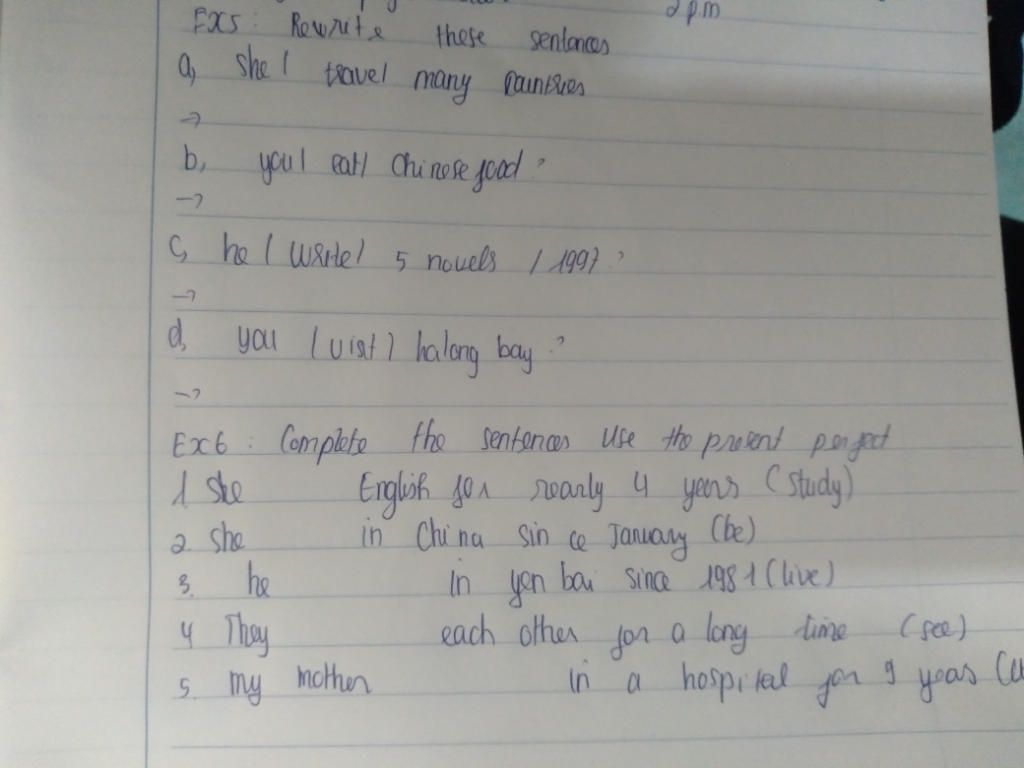 2pm
EX5: Rewrite these sentences
a, she / travel many countries
→
b, you / eat / Chinese food?
→
c, he / write / 5 novels / 1997?
→
d, you (visit) halong bay?
→
EX6: Complete the sentences use the present perfect
1 she English for nearly 4 years (study)
2. she in China since January (be)
3. he in yen bai since 1981 (live)
4 They each other for a long time (see)
5. my mother in a hospital for 9 years (